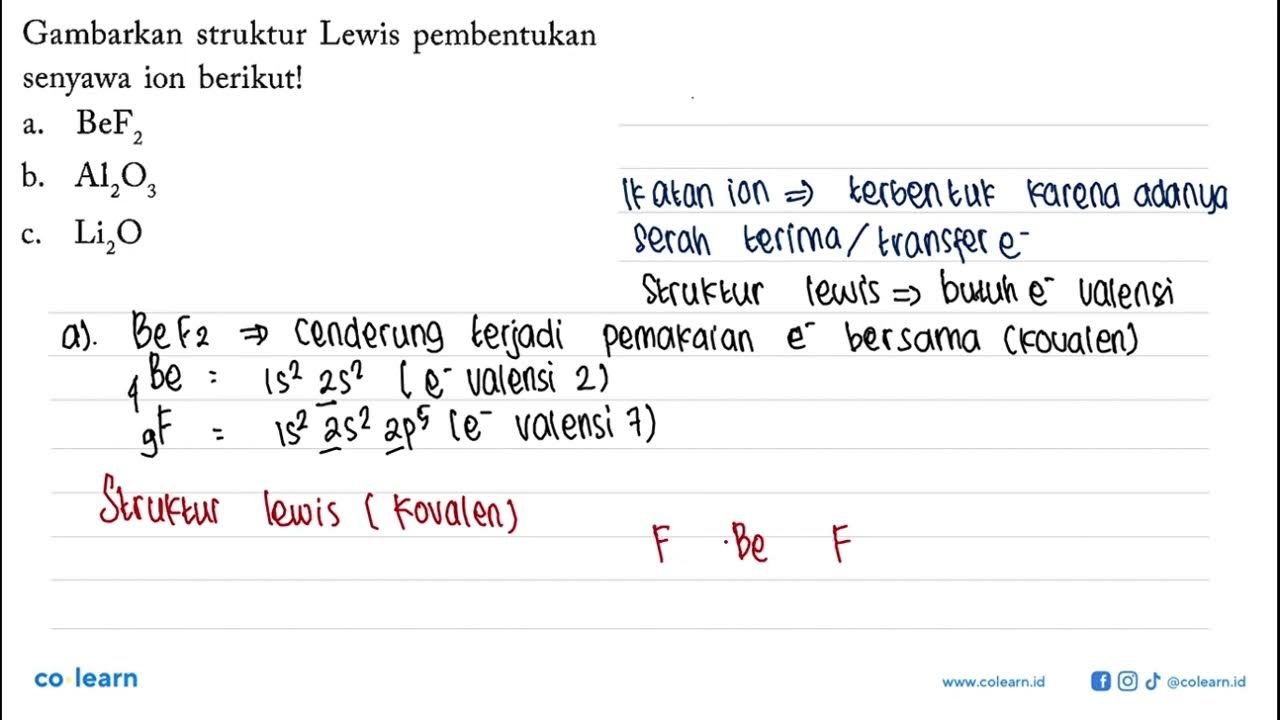 Gambarkan struktur Lewis pembentukan
senyawa ion berikut!
a. BeF₂
b. Al₂O₃
c. Li₂O
Ikatan ion => terbentuk karena adanya
serah terima/transfer e⁻
Struktur lewis => butuh e⁻ valensi
a). BeF2 => cenderung terjadi pemakaian e⁻ bersama (kovalen)
₄Be = 1s² 2s² (e⁻ valensi 2)
₉F = 1s² 2s² 2p⁵ (e⁻ valensi 7)
Struktur lewis (kovalen)
F ·Be F
co learn
www.colearn.id
@colearn.id